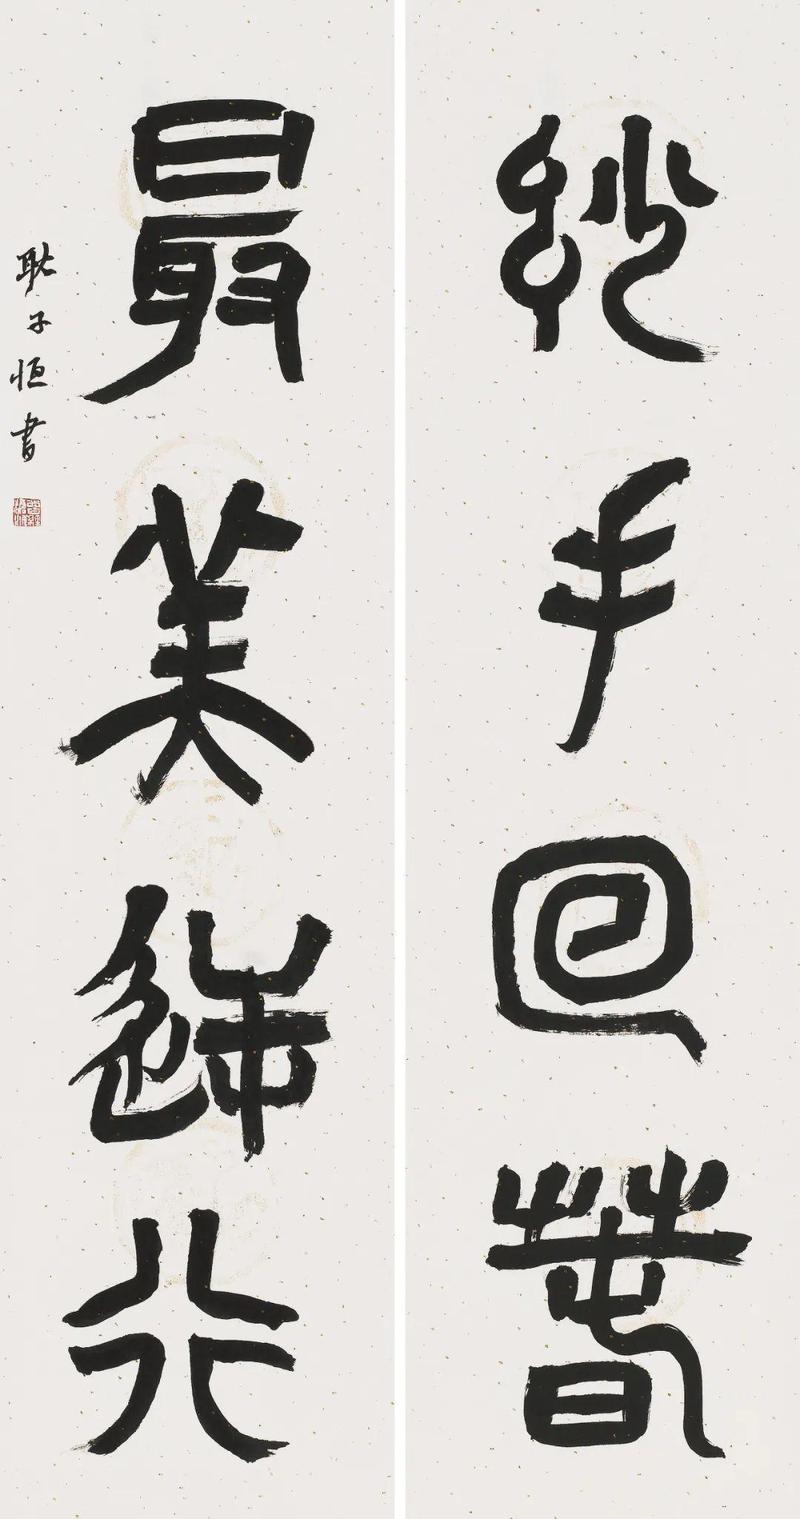 妙手回春
最美逆行
耿子恒書